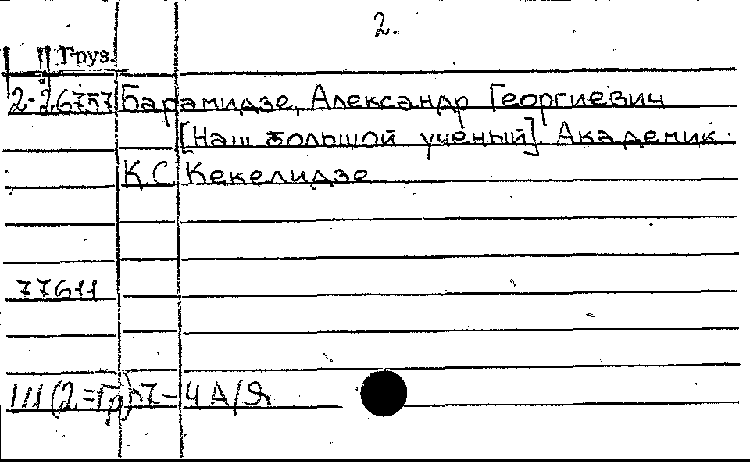 2.
Груз.
2-26757 Барамидзе, Александр Георгиевич
[Наш большой ученый] Академик
К С Кекелидзе
77611
111(2=Гр)
4 А/Я